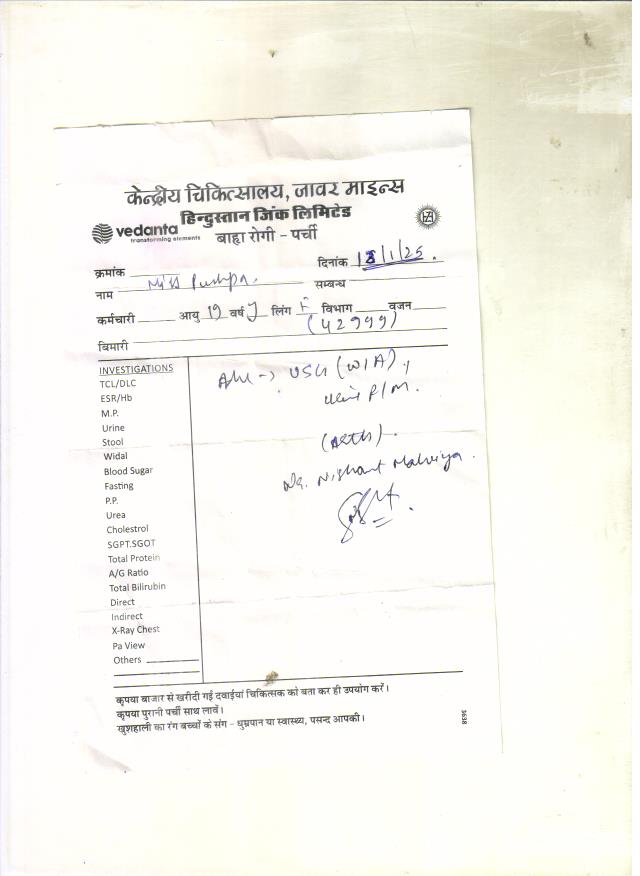 केन्द्रीय चिकित्सालय, जावर माइन्स
हिन्दुस्तान जिंक लिमिटेड
vedanta
transforming elements
बाह्य रोगी - पर्ची
क्रमांक दिनांक 18/1/25.
नाम Miss Pushpa. सम्बन्ध
कर्मचारी आयु 19 वर्ष y लिंग F विभाग वजन
(42999)
बिमारी
INVESTIGATIONS
TCL/DLC
ESR/Hb
M.P.
Urine
Stool
Widal
Blood Sugar
Fasting
P.P.
Urea
Cholestrol
SGPT.SGOT
Total Protein
A/G Ratio
Total Bilirubin
Direct
Indirect
X-Ray Chest
Pa View
Others
Adv -> USG (W/A),
Urine R/M.
Dr. Nishant Malviya.
कृपया बाजार से खरीदी गई दवाईयां चिकित्सक को बता कर ही उपयोग करें।
कृपया पुरानी पर्ची साथ लावें।
खुशहाली का रंग बच्चों के संग - धुम्रपान या स्वास्थ्य, पसन्द आपकी।
3638